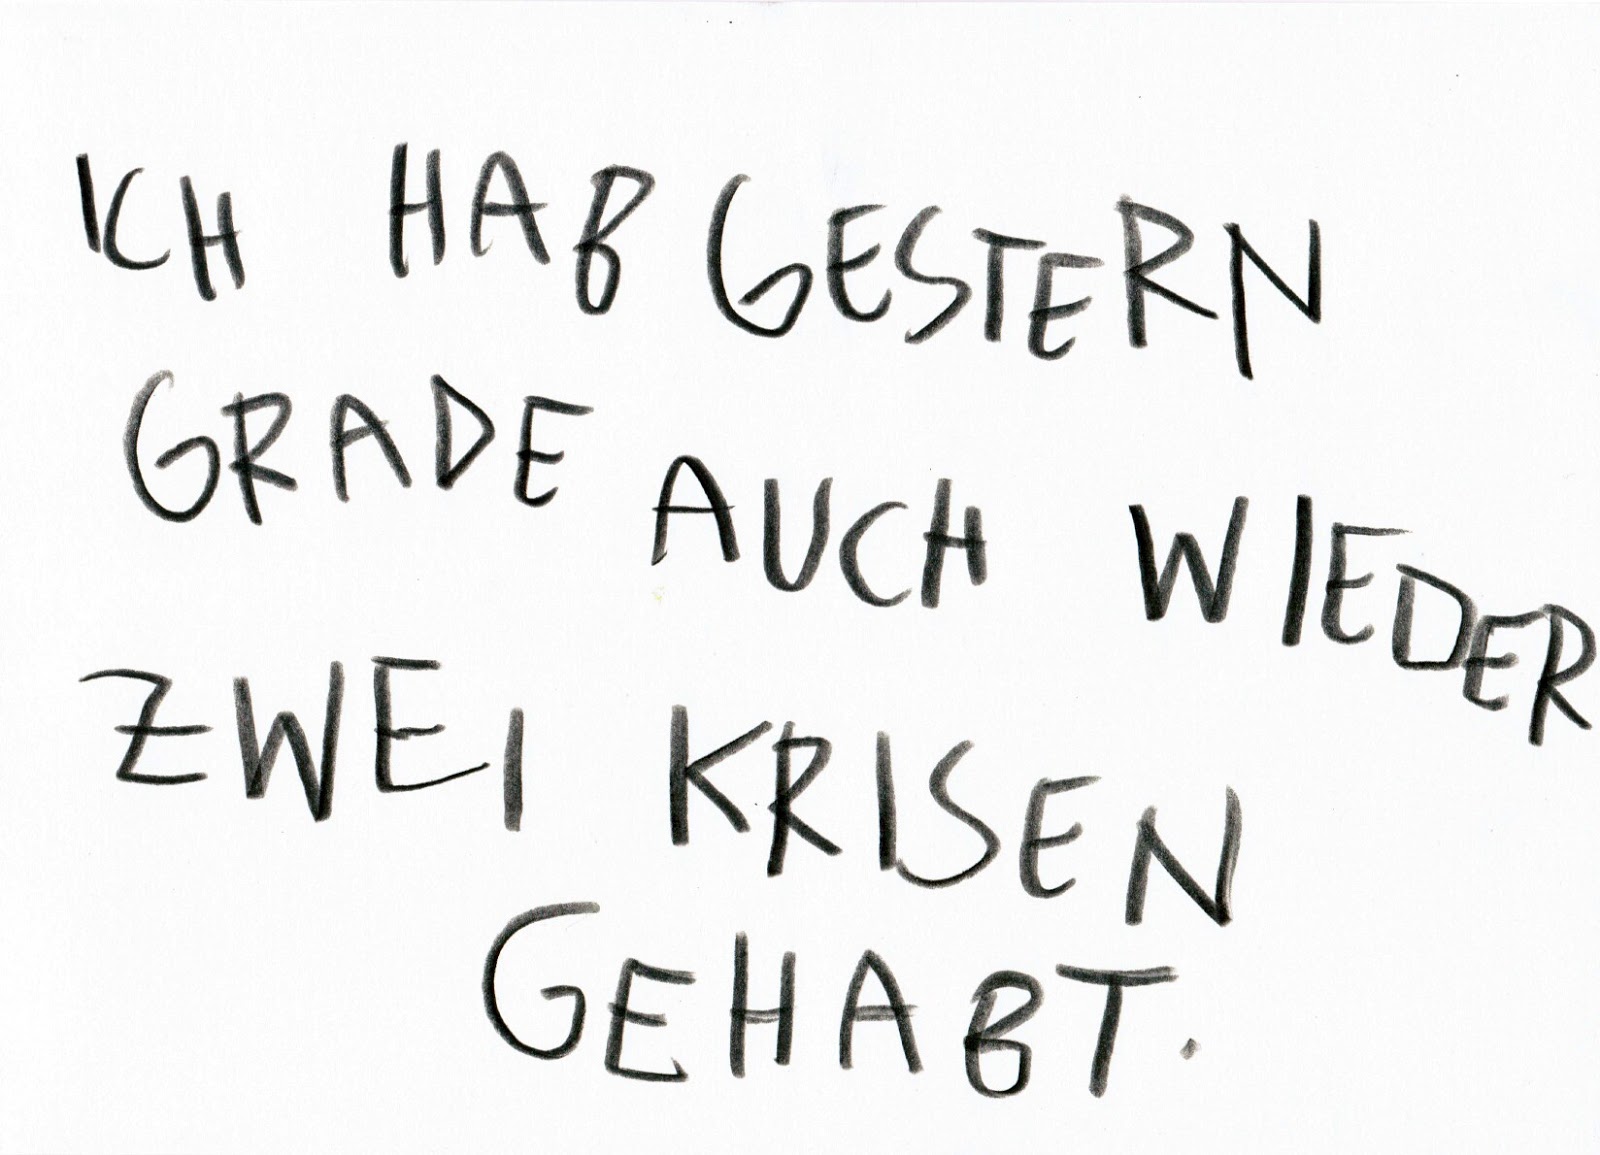 ICH HAB GESTERN
GRADE AUCH WIEDER
ZWEI KRISEN
GEHABT.